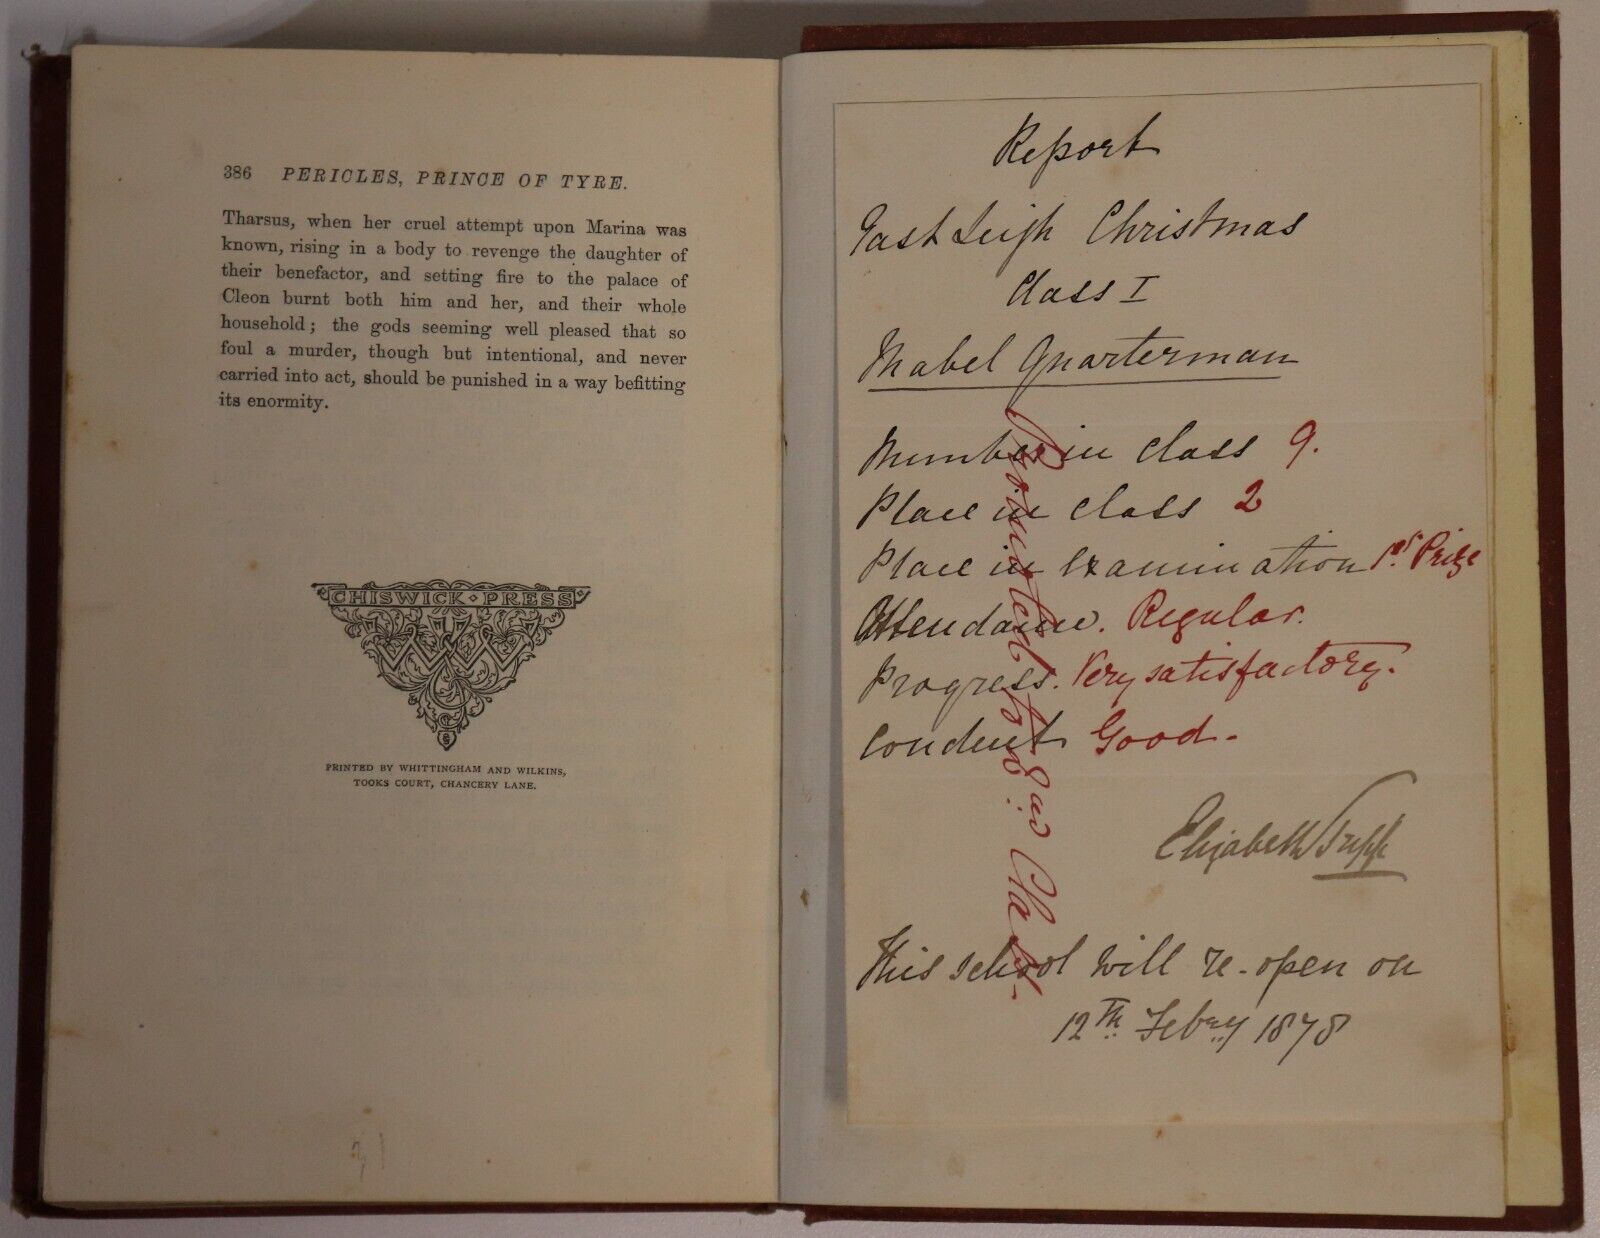 386 PERICLES, PRINCE OF TYRE.
Tharsus, when her cruel attempt upon Marina was
known, rising in a body to revenge the daughter of
their benefactor, and setting fire to the palace of
Cleon burnt both him and her, and their whole
household; the gods seeming well pleased that so
foul a murder, though but intentional, and never
carried into act, should be punished in a way befitting
its enormity.
CHISWICK PRESS
PRINTED BY WHITTINGHAM AND WILKINS,
TOOKS COURT, CHANCERY LANE.
Report
East Leigh Christmas
Class I
Mabel Quarterman
Number in class 9.
Place in class 2
Place in Examination 1st Prize
Attendance. Regular.
Progress. Very satisfactory.
Conduct Good.
Promoted to 2nd Class.
Elizabeth
This school will re-open on
12th Febry 1878